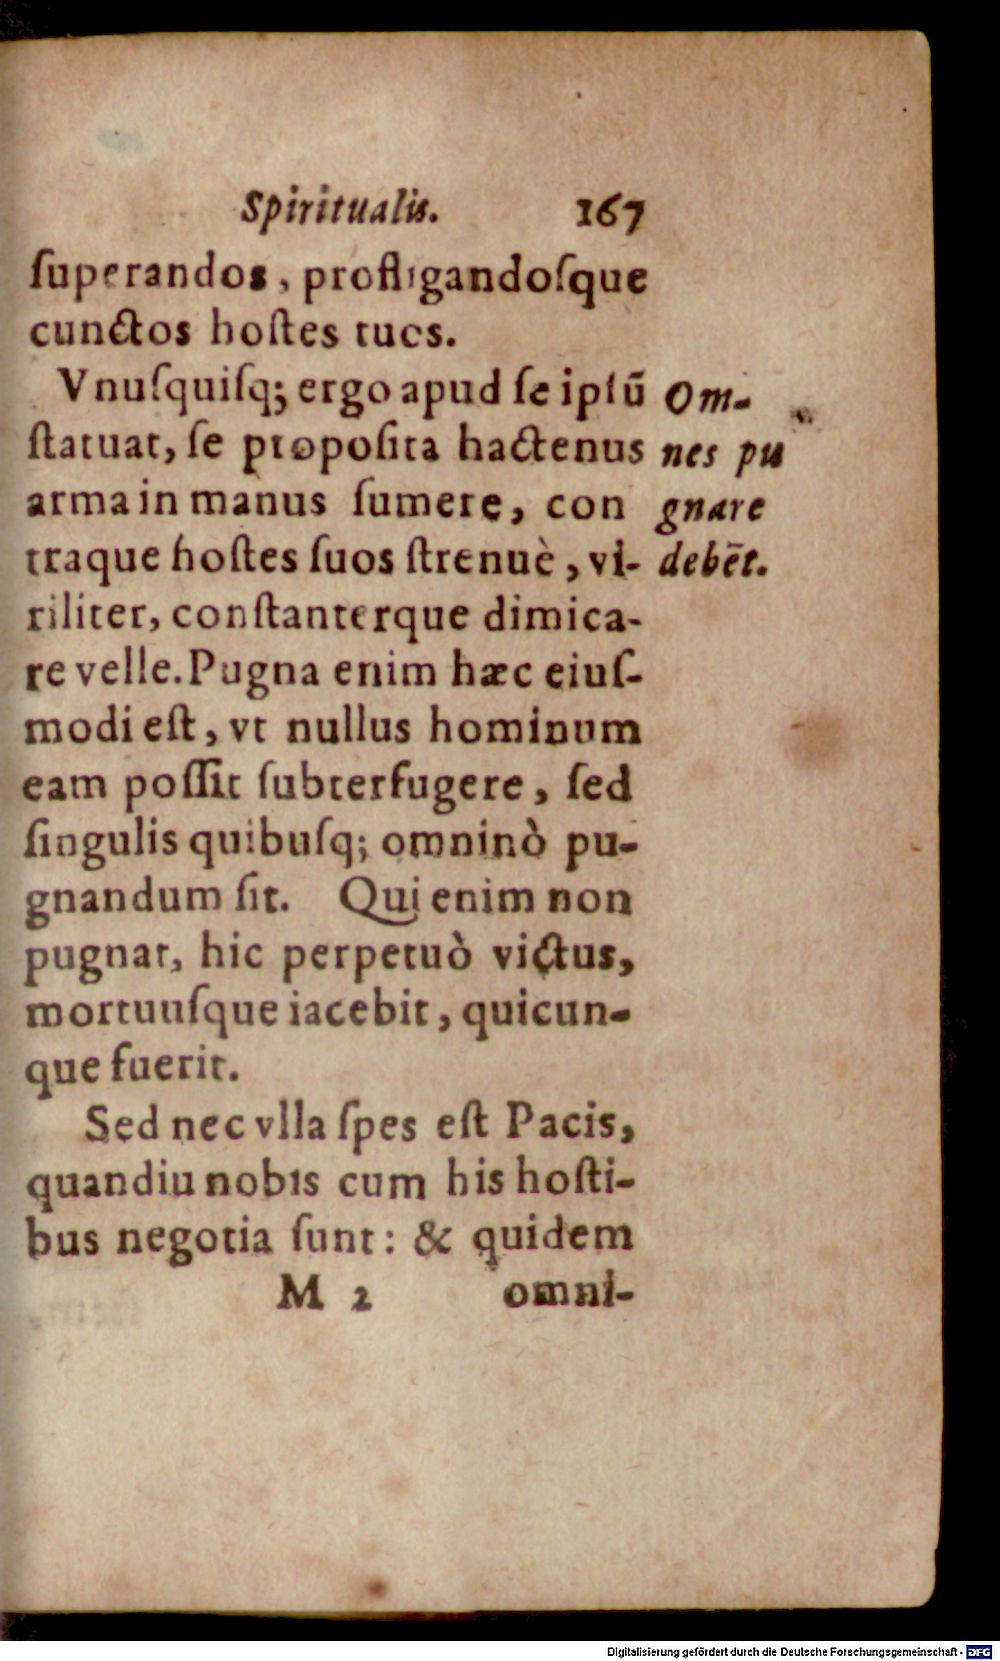 Spiritualis. 167
ſuperandos, profligandoſque
cunctos hoſtes tuos.
Vnuſquiſq; ergo apud ſe ipſū
ſtatuat, ſe propoſita hactenus
arma in manus ſumere, con
traque hoſtes ſuos ſtrenuè, vi-
riliter, conſtanterque dimica-
re velle. Pugna enim hæc eiuſ-
modi eſt, vt nullus hominum
eam poſſit ſubterfugere, ſed
ſingulis quibuſq; omninò pu-
gnandum ſit. Qui enim non
pugnat, hic perpetuò victus,
mortuuſque iacebit, quicun-
que fuerit.
Sed nec vlla ſpes eſt Pacis,
quandiu nobis cum his hoſti-
bus negotia ſunt: & quidem
M 2 omni-
Om-
nes pu
gnare
debēt.
Digitalisierung gefördert durch die Deutsche Forschungsgemeinschaft - DFG